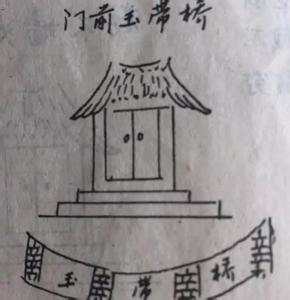 门前玉带桥
玉 带 桥